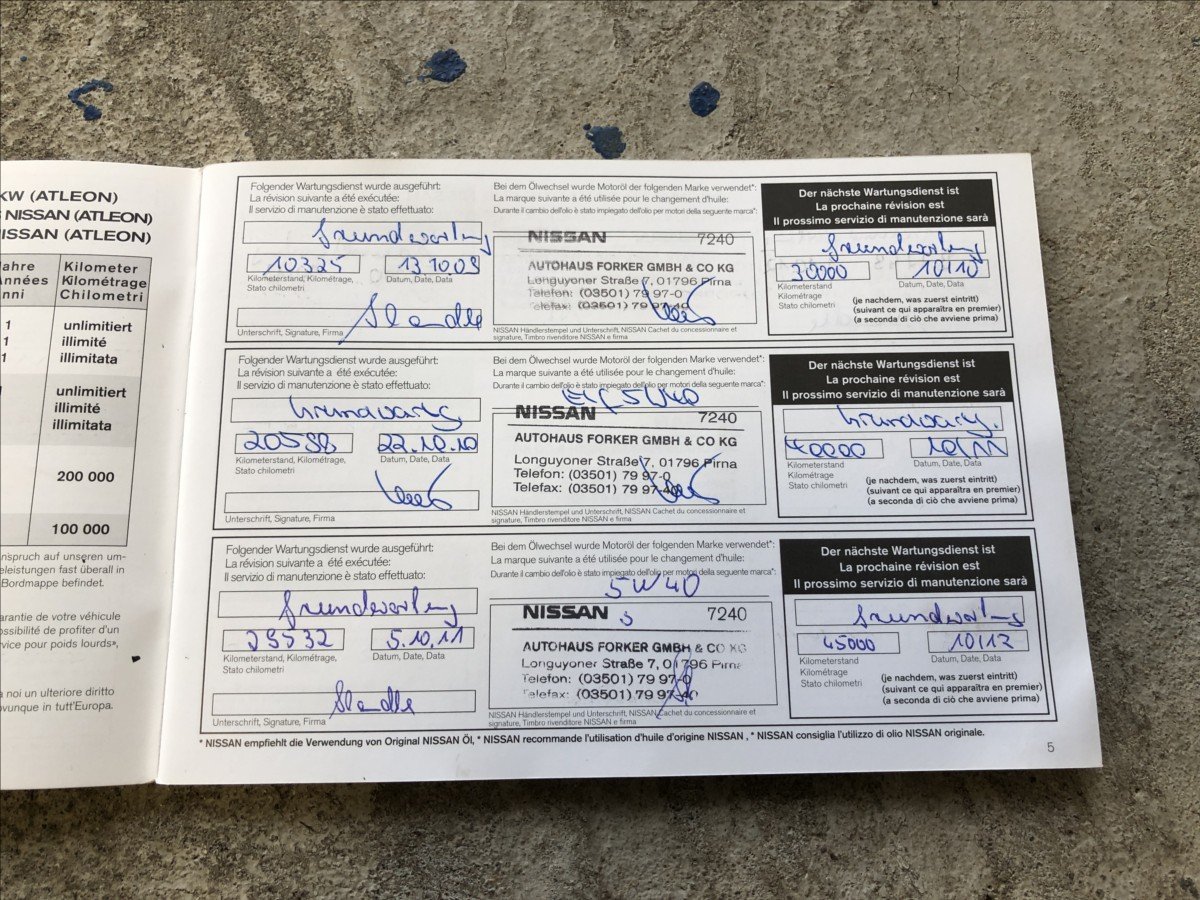 KW (ATLEON)
NISSAN (ATLEON)
ISSAN (ATLEON)
Jahre
Années
nni
Kilometer
Kilométrage
Chilometri
1
1
1
unlimitiert
illimité
illimitata
unlimitiert
illimité
illimitata
200 000
100 000
nspruch auf unseren um-
eleistungen fast überall in
Bordmappe befindet.
arantie de votre véhicule
ossibilité de profiter d'un
vice pour poids lourds»,
a noi un ulteriore diritto
ovunque in tutt'Europa.
Folgender Wartungsdienst wurde ausgeführt:
La révision suivante a été exécutée:
Il servizio di manutenzione è stato effettuato:
Grundwartung
10325
13.10.09
Kilometerstand, Kilométrage,
Stato chilometri
Datum, Date, Data
Unterschrift, Signature, Firma
Bei dem Ölwechsel wurde Motoröl der folgenden Marke verwendet*:
La marque suivante a été utilisée pour le changement d'huile:
Durante il cambio dell'olio è stato impiegato dell'olio per motori della seguente marca*:
NISSAN 7240
AUTOHAUS FORKER GMBH & CO KG
Longuyoner Straße 7, 01796 Pirna
Telefon: (03501) 79 97-0
Telefax: (03501) 79 97-40
NISSAN Händlerstempel und Unterschrift, NISSAN Cachet du concessionnaire et
signature, Timbro rivenditore NISSAN e firma
Der nächste Wartungsdienst ist
La prochaine révision est
Il prossimo servizio di manutenzione sarà
Grundwartung
30000
10/10
Kilometerstand
Kilométrage
Stato chilometri
Datum, Date, Data
(je nachdem, was zuerst eintritt)
(suivant ce qui apparaîtra en premier)
(a seconda di ciò che avviene prima)
Folgender Wartungsdienst wurde ausgeführt:
La révision suivante a été exécutée:
Il servizio di manutenzione è stato effettuato:
Grundwartg
20588
22.10.10
Kilometerstand, Kilométrage,
Stato chilometri
Datum, Date, Data
Unterschrift, Signature, Firma
Bei dem Ölwechsel wurde Motoröl der folgenden Marke verwendet*:
La marque suivante a été utilisée pour le changement d'huile:
Durante il cambio dell'olio è stato impiegato dell'olio per motori della seguente marca*:
Elf 5W40
NISSAN 7240
AUTOHAUS FORKER GMBH & CO KG
Longuyoner Straße 7, 01796 Pirna
Telefon: (03501) 79 97-0
Telefax: (03501) 79 97-40
NISSAN Händlerstempel und Unterschrift, NISSAN Cachet du concessionnaire et
signature, Timbro rivenditore NISSAN e firma
Der nächste Wartungsdienst ist
La prochaine révision est
Il prossimo servizio di manutenzione sarà
Grundwartg.
40000
10/11
Kilometerstand
Kilométrage
Stato chilometri
Datum, Date, Data
(je nachdem, was zuerst eintritt)
(suivant ce qui apparaîtra en premier)
(a seconda di ciò che avviene prima)
Folgender Wartungsdienst wurde ausgeführt:
La révision suivante a été exécutée:
Il servizio di manutenzione è stato effettuato:
Grundwartung
29532
5.10.11
Kilometerstand, Kilométrage,
Stato chilometri
Datum, Date, Data
Unterschrift, Signature, Firma
Bei dem Ölwechsel wurde Motoröl der folgenden Marke verwendet*:
La marque suivante a été utilisée pour le changement d'huile:
Durante il cambio dell'olio è stato impiegato dell'olio per motori della seguente marca*:
5W40
NISSAN 7240
AUTOHAUS FORKER GMBH & CO KG
Longuyoner Straße 7, 01796 Pirna
Telefon: (03501) 79 97-0
Telefax: (03501) 79 97-40
NISSAN Händlerstempel und Unterschrift, NISSAN Cachet du concessionnaire et
signature, Timbro rivenditore NISSAN e firma
Der nächste Wartungsdienst ist
La prochaine révision est
Il prossimo servizio di manutenzione sarà
Grundwartung
45000
10/12
Kilometerstand
Kilométrage
Stato chilometri
Datum, Date, Data
(je nachdem, was zuerst eintritt)
(suivant ce qui apparaîtra en premier)
(a seconda di ciò che avviene prima)
* NISSAN empfiehlt die Verwendung von Original NISSAN Öl, * NISSAN recommande l'utilisation d'huile d'origine NISSAN , * NISSAN consiglia l'utilizzo di olio NISSAN originale.
5